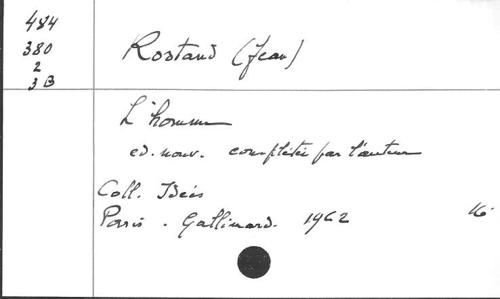 484
380
2
3 B
Rostand (Jean)
L'homme
ed. nouv. complétée par l'auteur
Coll. Idées
Paris . Gallimard. 1962
16